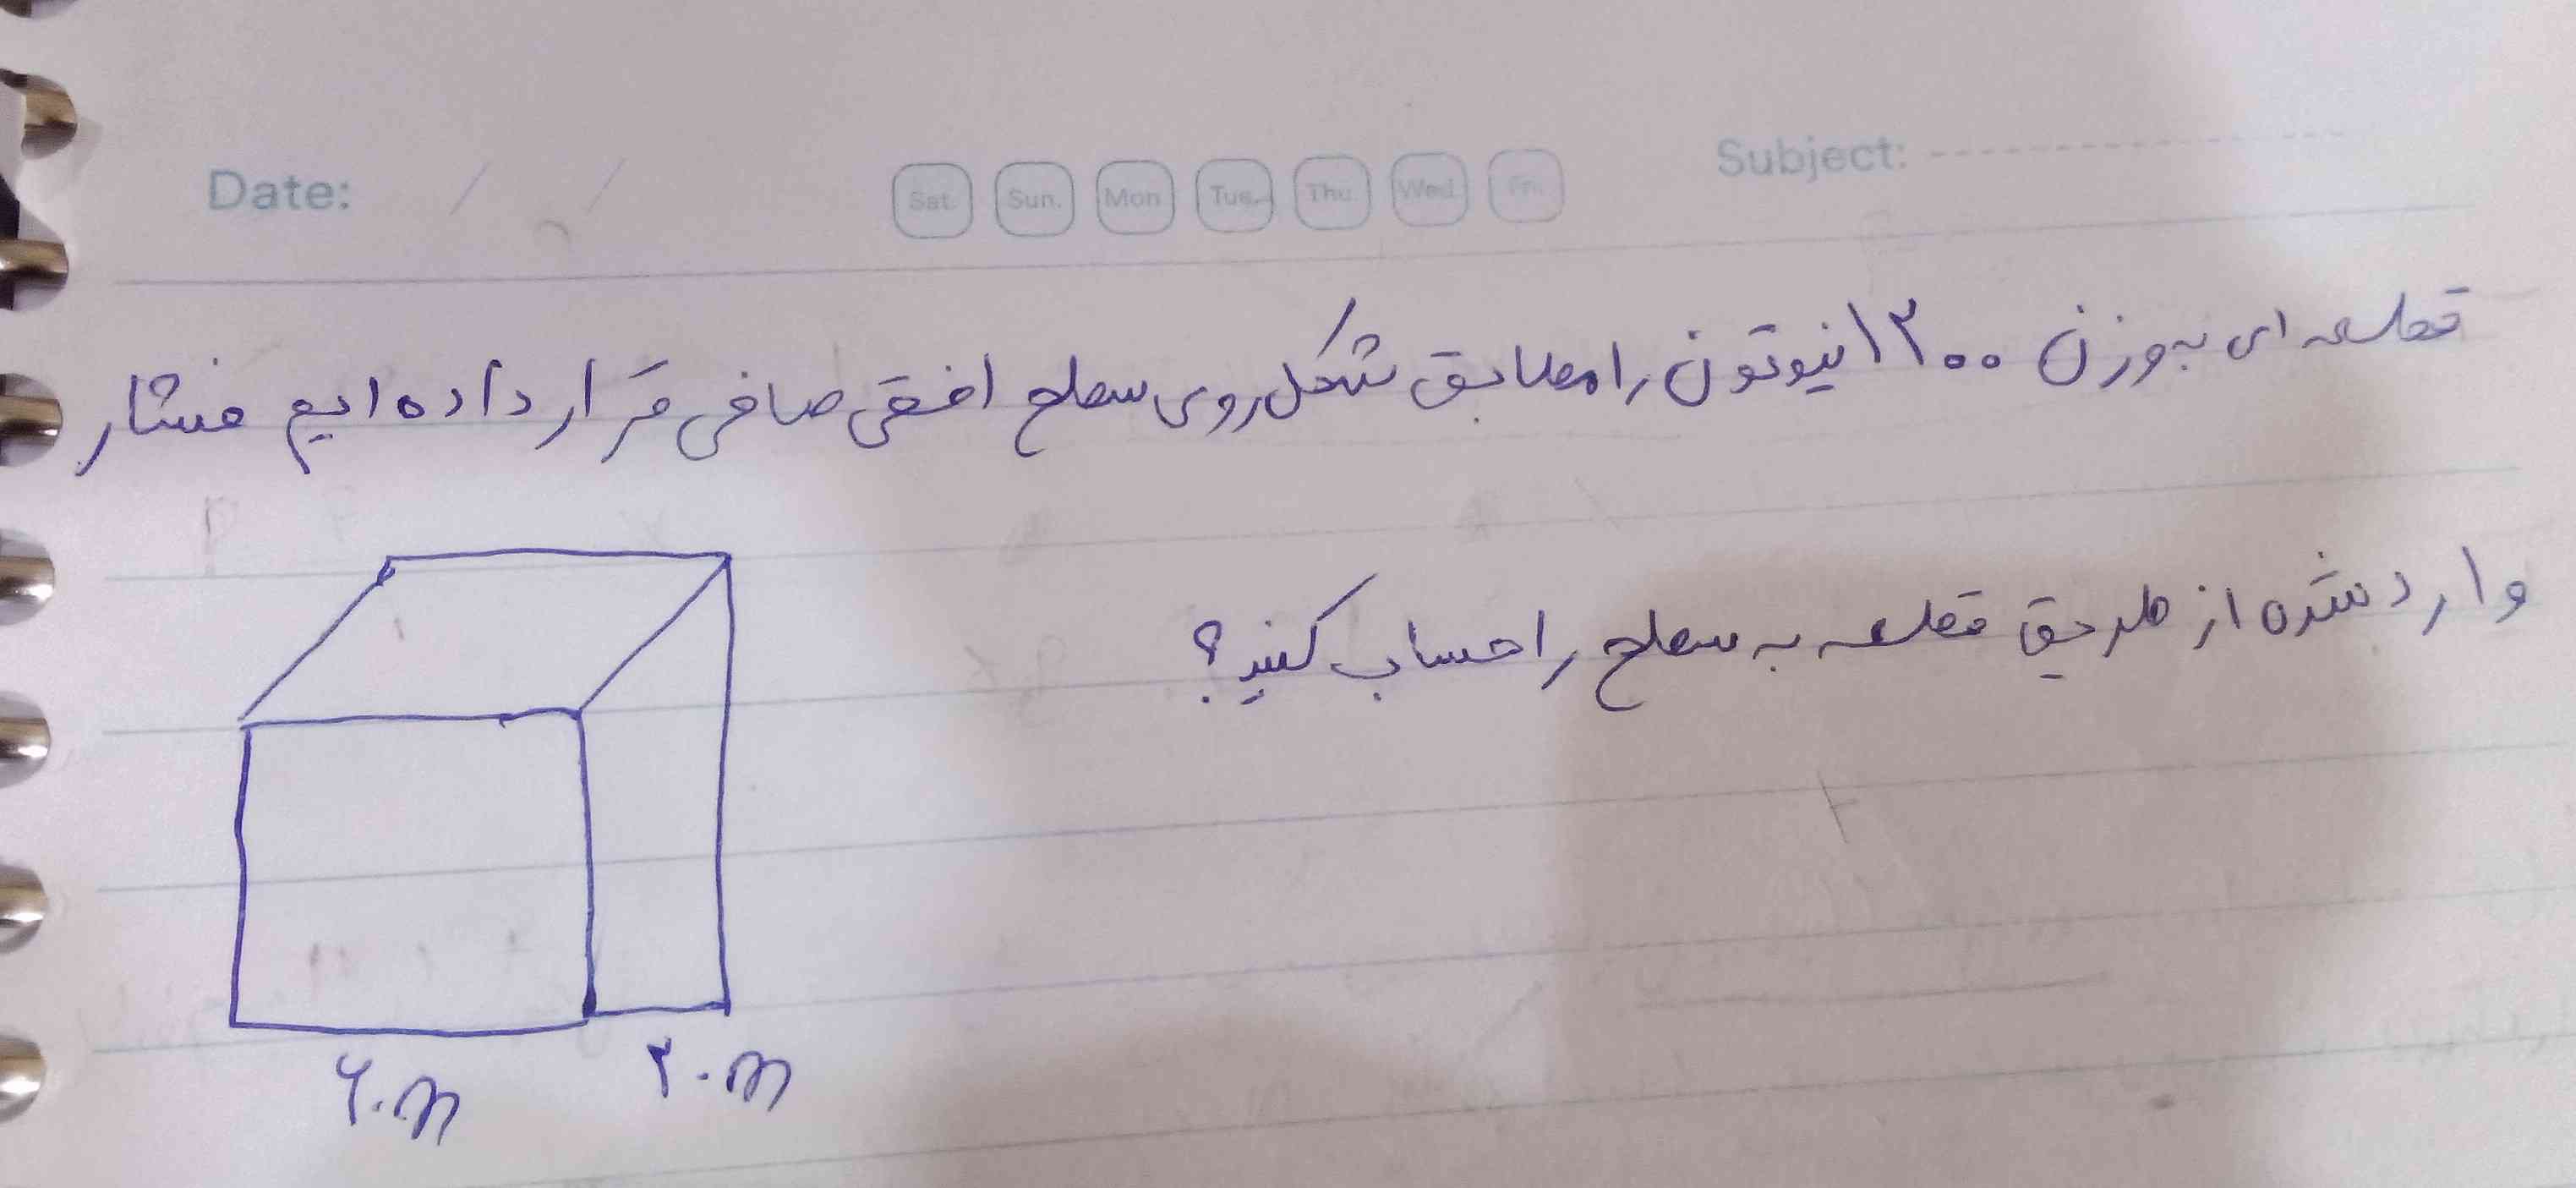 Date: / / Sat. Sun. Mon Tue. Thu. Wed. Fri. Subject:
قطعه ای به وزن ۱۲۰۰ نیوتون را مطابق شکل روی سطح افقی صافی قرار داده ایم فشار
وارد شده از طریق قطعه به سطح را حساب کنید؟
۶۰m ۲۰m